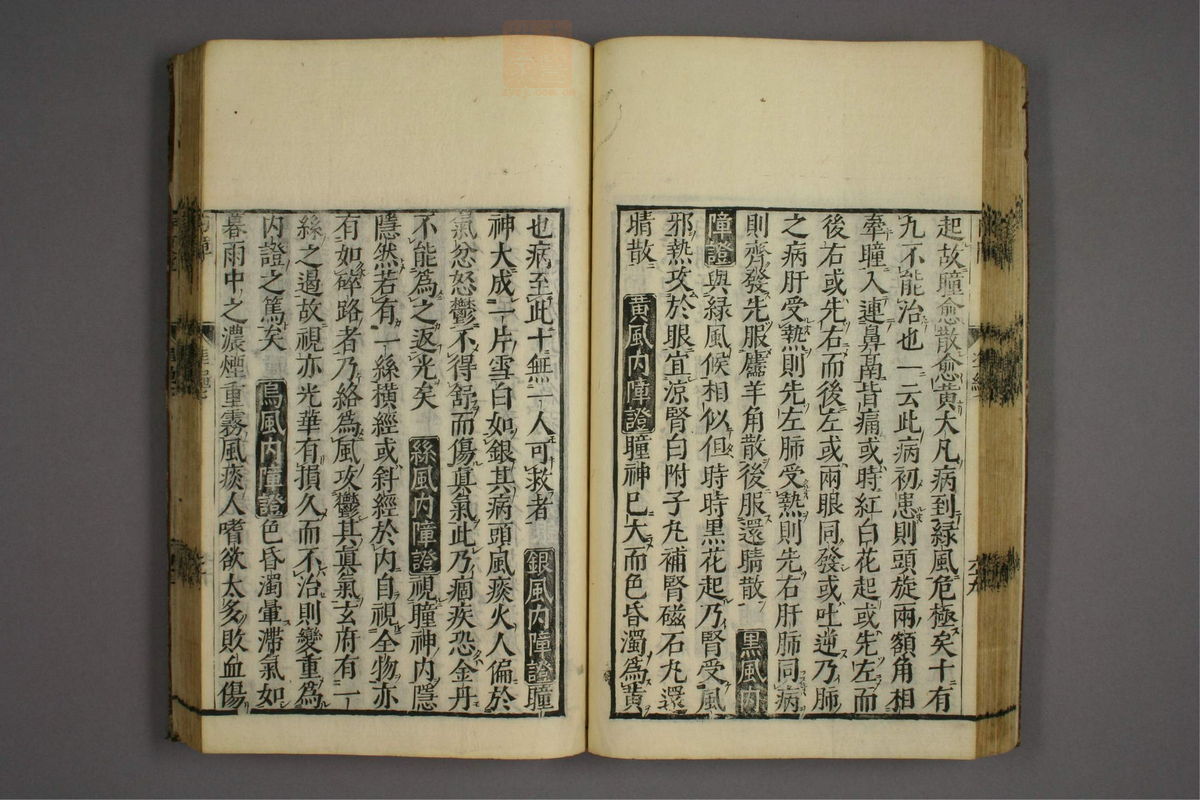 起故瞳愈散愈黃大凡病到綠風危極矣十有
九不能治也一云此病初患則頭旋兩額角相
牽瞳人連鼻鬲皆痛或時紅白花起或先左而
後右或先右而後左或兩眼同發或吐逆乃肺
之病肝受熱則先左肺受熱則先右肝肺同病
則齊發先服羊角散後服還睛散 黑風內
障證與綠風候相似但時時黑花起乃腎受風
邪熱攻於眼宜涼腎白附子丸補腎磁石丸還
睛散 黃風內障證瞳神已大而色昏濁為黃
也病至此十無一人可救者 銀風內障證瞳
神大成一片雪白如銀其病頭風痰火人偏於
氣忿怒鬱不得舒而傷真氣此乃痼疾恐金丹
不能為之返光矣 絲風內障證視瞳神內隱
隱然若有一絲橫經或斜經於內自視全物亦
有如碎路者乃絡為風攻鬱其真氣玄府有一
絲之遏故視亦光華有損久而不治則變重為
內證之篤矣 烏風內障證色昏濁暈滯氣如
暮雨中之濃煙重霧風痰人嗜欲太多敗血傷